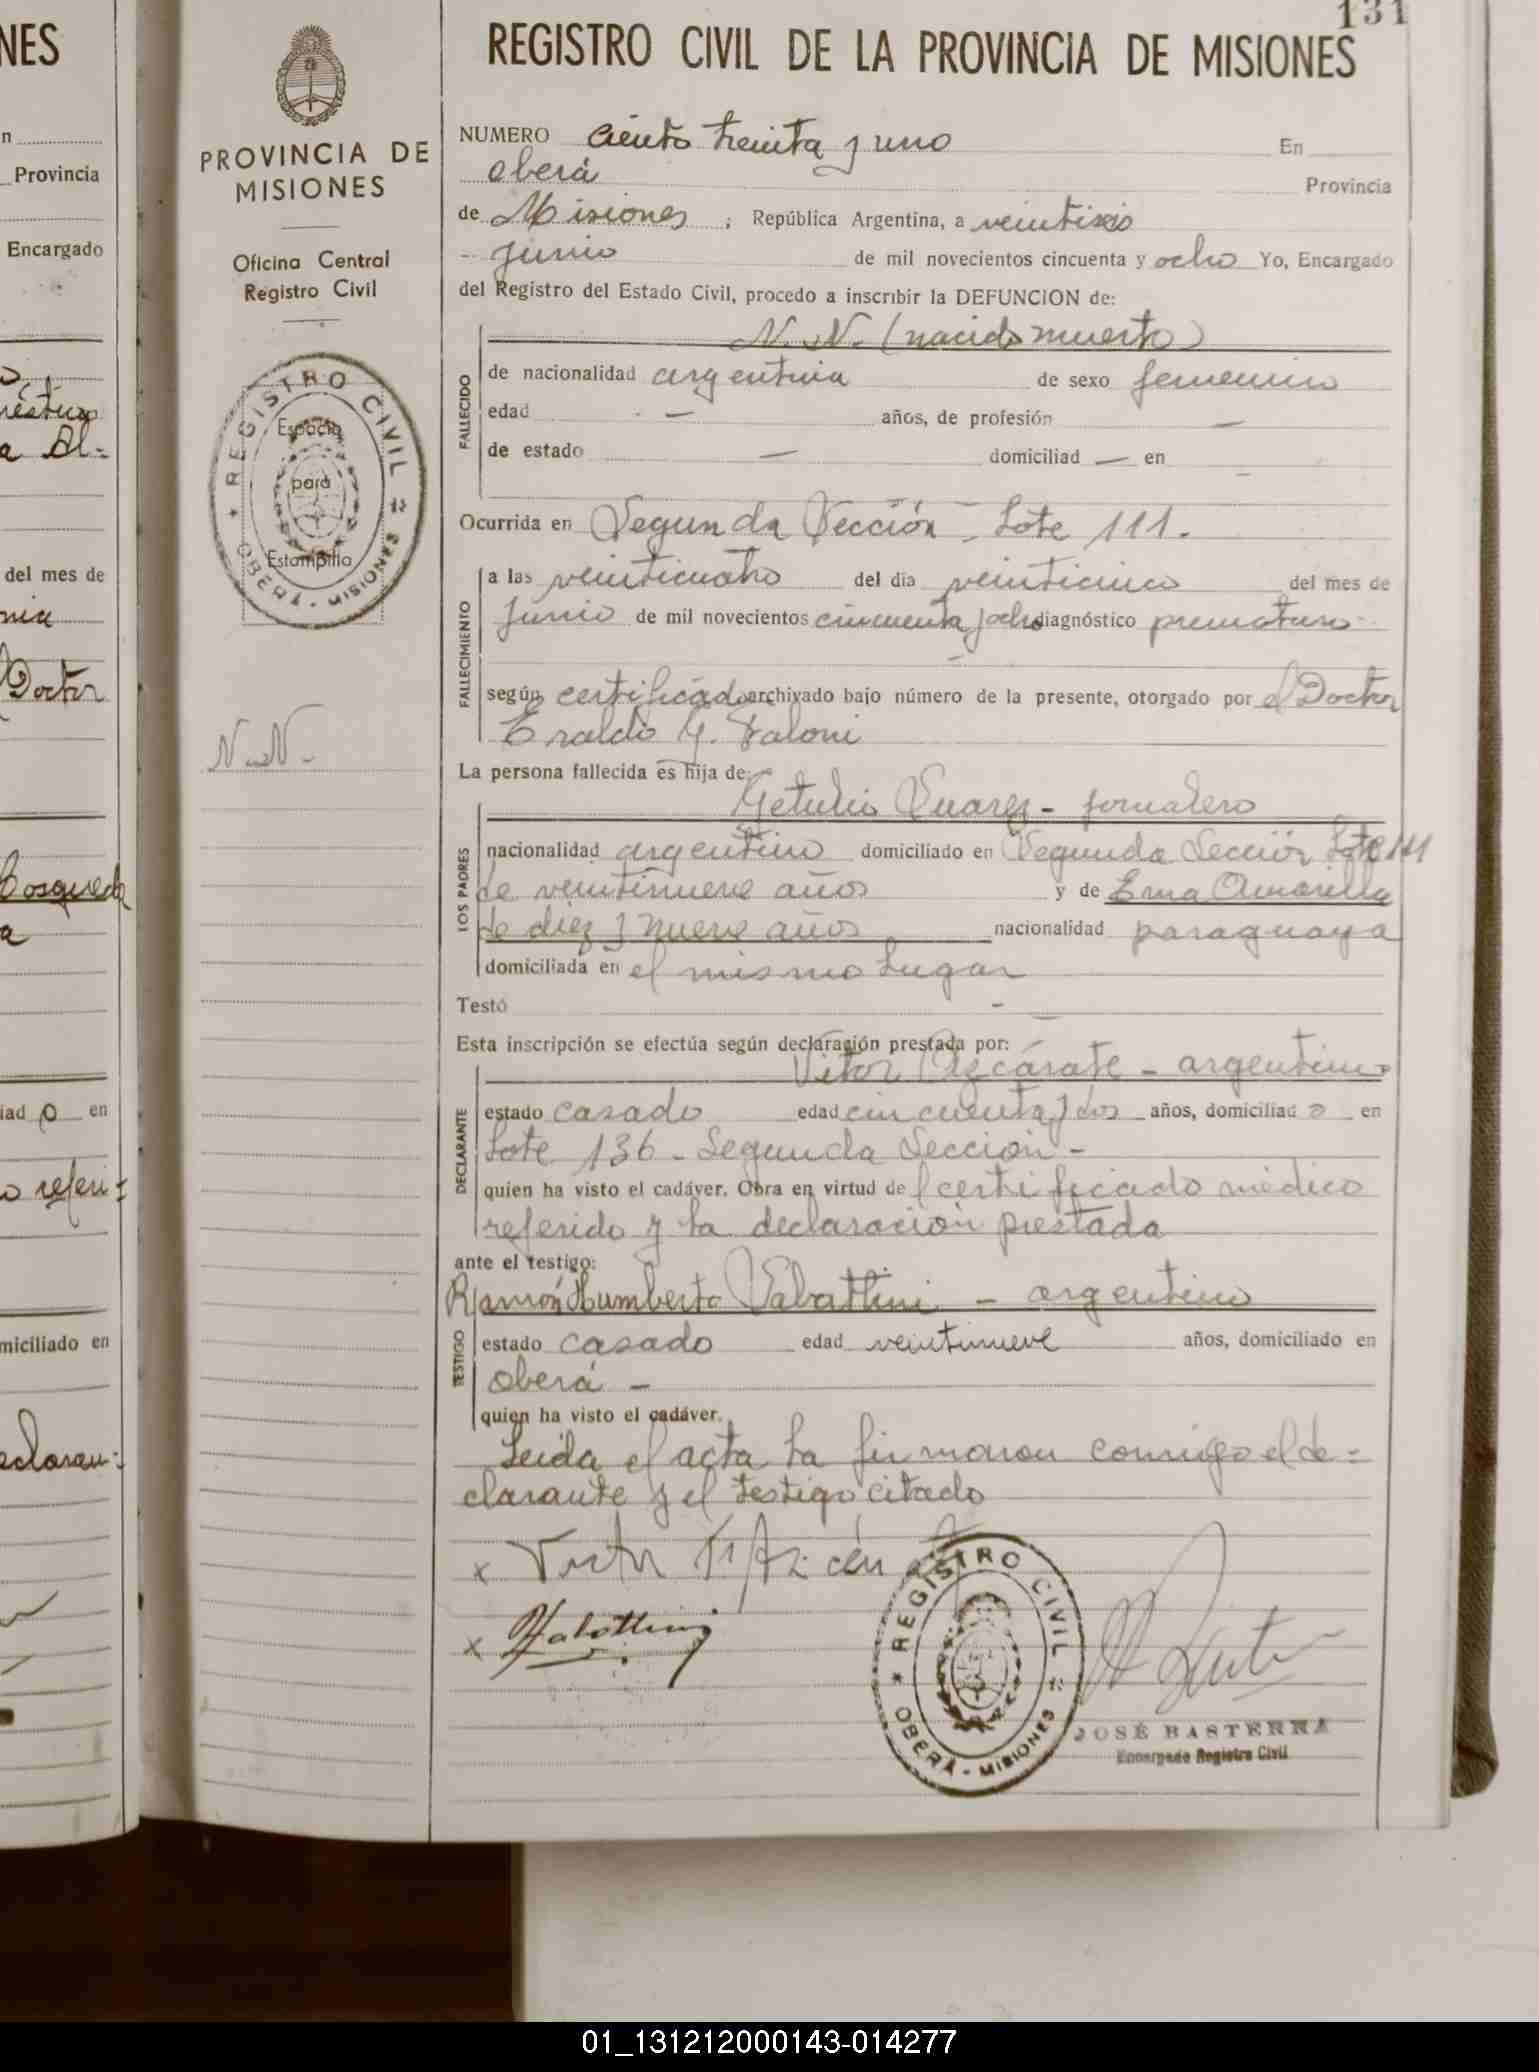 131
NES
n
Provincia
Encargado
del mes de
Doctor
iad o en
o referi=
miciliado en
PROVINCIA DE
MISIONES
Oficina Central
Registro Civil
REGISTRO CIVIL
Espacio
para
Estampilla
OBERÁ - MISIONES
N.N.
REGISTRO CIVIL DE LA PROVINCIA DE MISIONES
NUMERO ciento treinta y uno En
Oberá Provincia
de Misiones ; República Argentina, a veintiseis
junio de mil novecientos cincuenta y ocho Yo, Encargado
del Registro del Estado Civil, procedo a inscribir la DEFUNCION de:
N.N. (nacido muerto)
FALLECIDO
de nacionalidad argentina de sexo femenino
edad — años, de profesión —
de estado — domiciliad — en
Ocurrida en Segunda Sección - Lote 111.
FALLECIMIENTO
a las veinticuatro del día veinticinco del mes de
junio de mil novecientos cincuenta y ocho diagnóstico prematuro
según certificado archivado bajo número de la presente, otorgado por el Doctor
Eraldo G. Faloni
La persona fallecida es hija de:
Getulio Suarez - jornalero
LOS PADRES
nacionalidad argentino domiciliado en Segunda Sección Lote 111
de veintinueve años y de Erna Amarilla
de diez y nueve años nacionalidad paraguaya
domiciliada en el mismo lugar
Testó -
Esta inscripción se efectúa según declaración prestada por:
Vitor Azcárate - argentino
DECLARANTE
estado casado edad cincuenta y dos años, domiciliad o en
Lote 136 - Segunda Sección -
quien ha visto el cadáver. Obra en virtud del certificado médico
referido y la declaración prestada
ante el testigo:
Ramón Humberto Sabattini - argentino
TESTIGO
estado casado edad veintinueve años, domiciliado en
Oberá -
quien ha visto el cadáver.
Leida el acta la firmaron conmigo el de=
clarante y el testigo citado
x
x Sabattini
REGISTRO CIVIL
OBERÁ - MISIONES
JOSÉ BASTERRA
Encargado Registro Civil
01_131212000143-014277